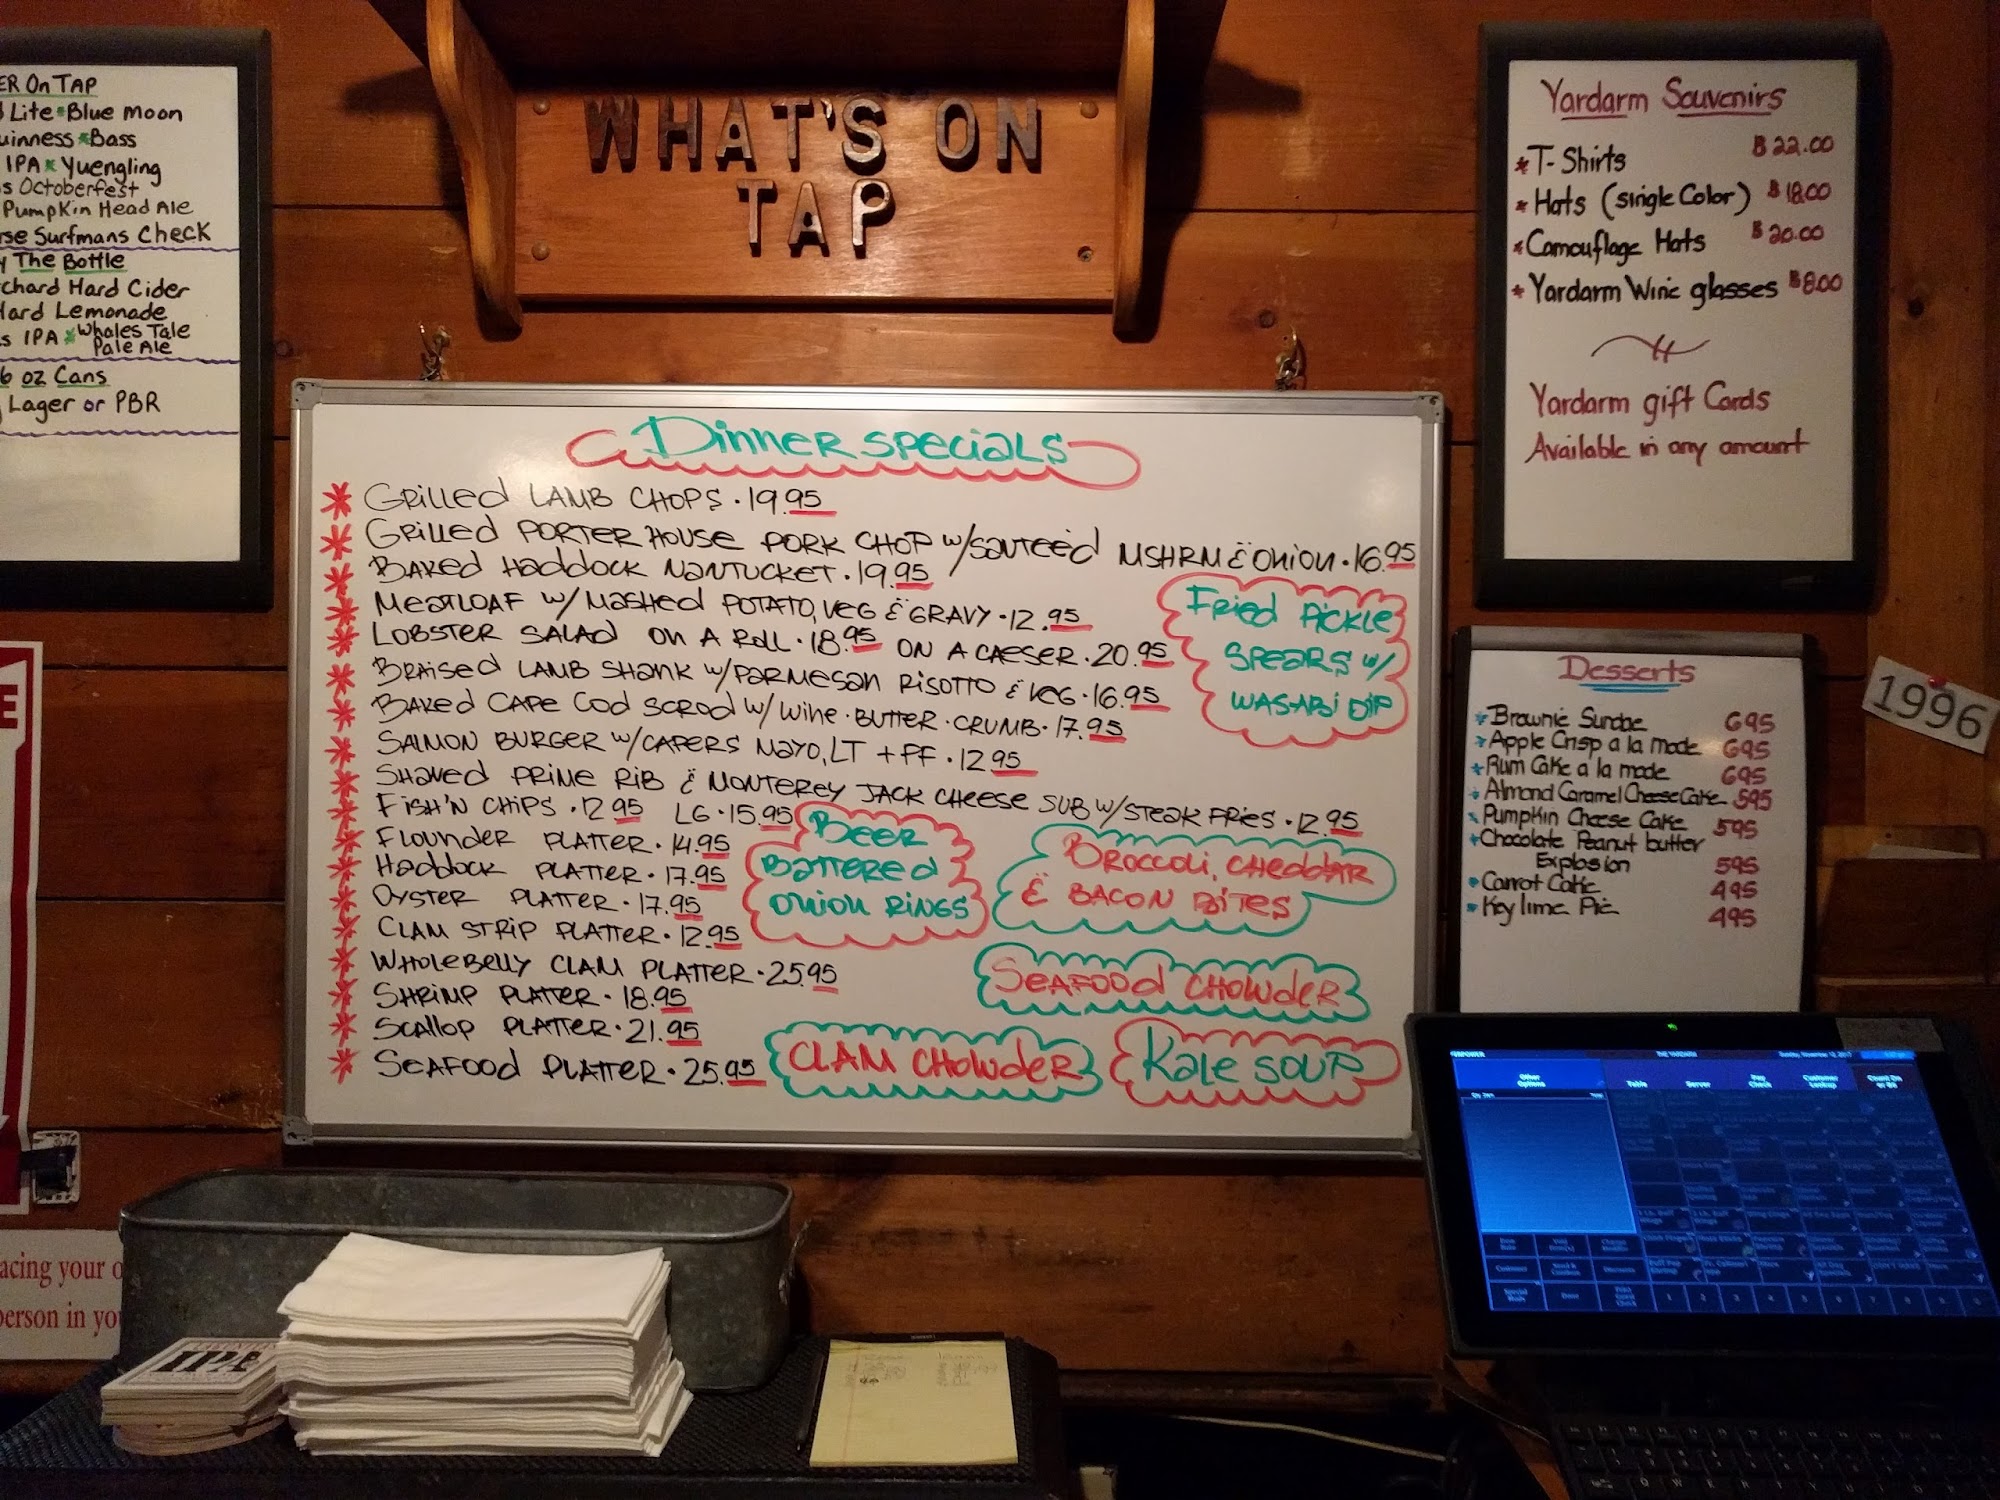 ER On TAP
Lite * Blue moon
uinness * Bass
IPA * Yuengling
s Octoberfest
Pumpkin Head Ale
rse Surfmans Check
y The Bottle
chard Hard Cider
Hard Lemonade
s IPA * Whales Tale
Pale Ale
6 oz Cans
Lager or PBR
WHAT'S ON
TAP
Dinner Specials
* Grilled LAMB CHOPS · 19.95
* Grilled PORTERHOUSE PORK CHOP w/Sauteéd MSHRM & Onion · 16.95
* BAKED HADDOCK NANTUCKET · 19.95
* MEATLOAF w/ MASHED POTATO, VEG & GRAVY · 12.95
* LOBSTER SALAD ON A Roll · 18.95 ON A CAESER · 20.95
* BRAISED LAMB SHANK w/PARMESAN RISOTTO & VEG · 16.95
* BAKED CAPE COD SCROD w/ WINE · BUTTER · CRUMB · 17.95
* SALMON BURGER w/CAPERS MAYO, LT + FF · 12.95
* SHAVED PRIME RIB & MONTEREY JACK CHEESE SUB w/STEAK FRIES · 12.95
* FISH'N CHIPS · 12.95 LG · 15.95
* Flounder PLATTER · 14.95
* HADDOCK PLATTER · 17.95
* OYSTER PLATTER · 17.95
* CLAM STRIP PLATTER · 12.95
* WHOLEBELLY CLAM PLATTER · 25.95
* SHRIMP PLATTER · 18.95
* SCALLOP PLATTER · 21.95
* SEAFOOD PLATTER · 25.95
Fried Pickle
SPEARS w/
WASABI DIP
BEER
BATTERED
ONION RINGS
BROCCOLI, CHEDDAR
& BACON BITES
SEAFOOD CHOWDER
CLAM CHOWDER
Kale SOUP
Yardarm Souvenirs
* T-Shirts $22.00
* Hats (single Color) $18.00
* Camouflage Hats $20.00
* Yardarm Wine glasses $8.00
Yardarm gift Cards
Available in any amount
Desserts
* Brownie Sundae 695
* Apple Crisp a la mode 695
* Rum Cake a la mode 695
* Almond Caramel Cheese Cake 595
* Pumpkin Cheese Cake 595
* Chocolate Peanut butter
Explosion 595
* Carrot Cake 495
* Key lime Pie 495
1996
E
acing your o
person in you
IPA
Other
Options
Table
Server
Customer
Lookup